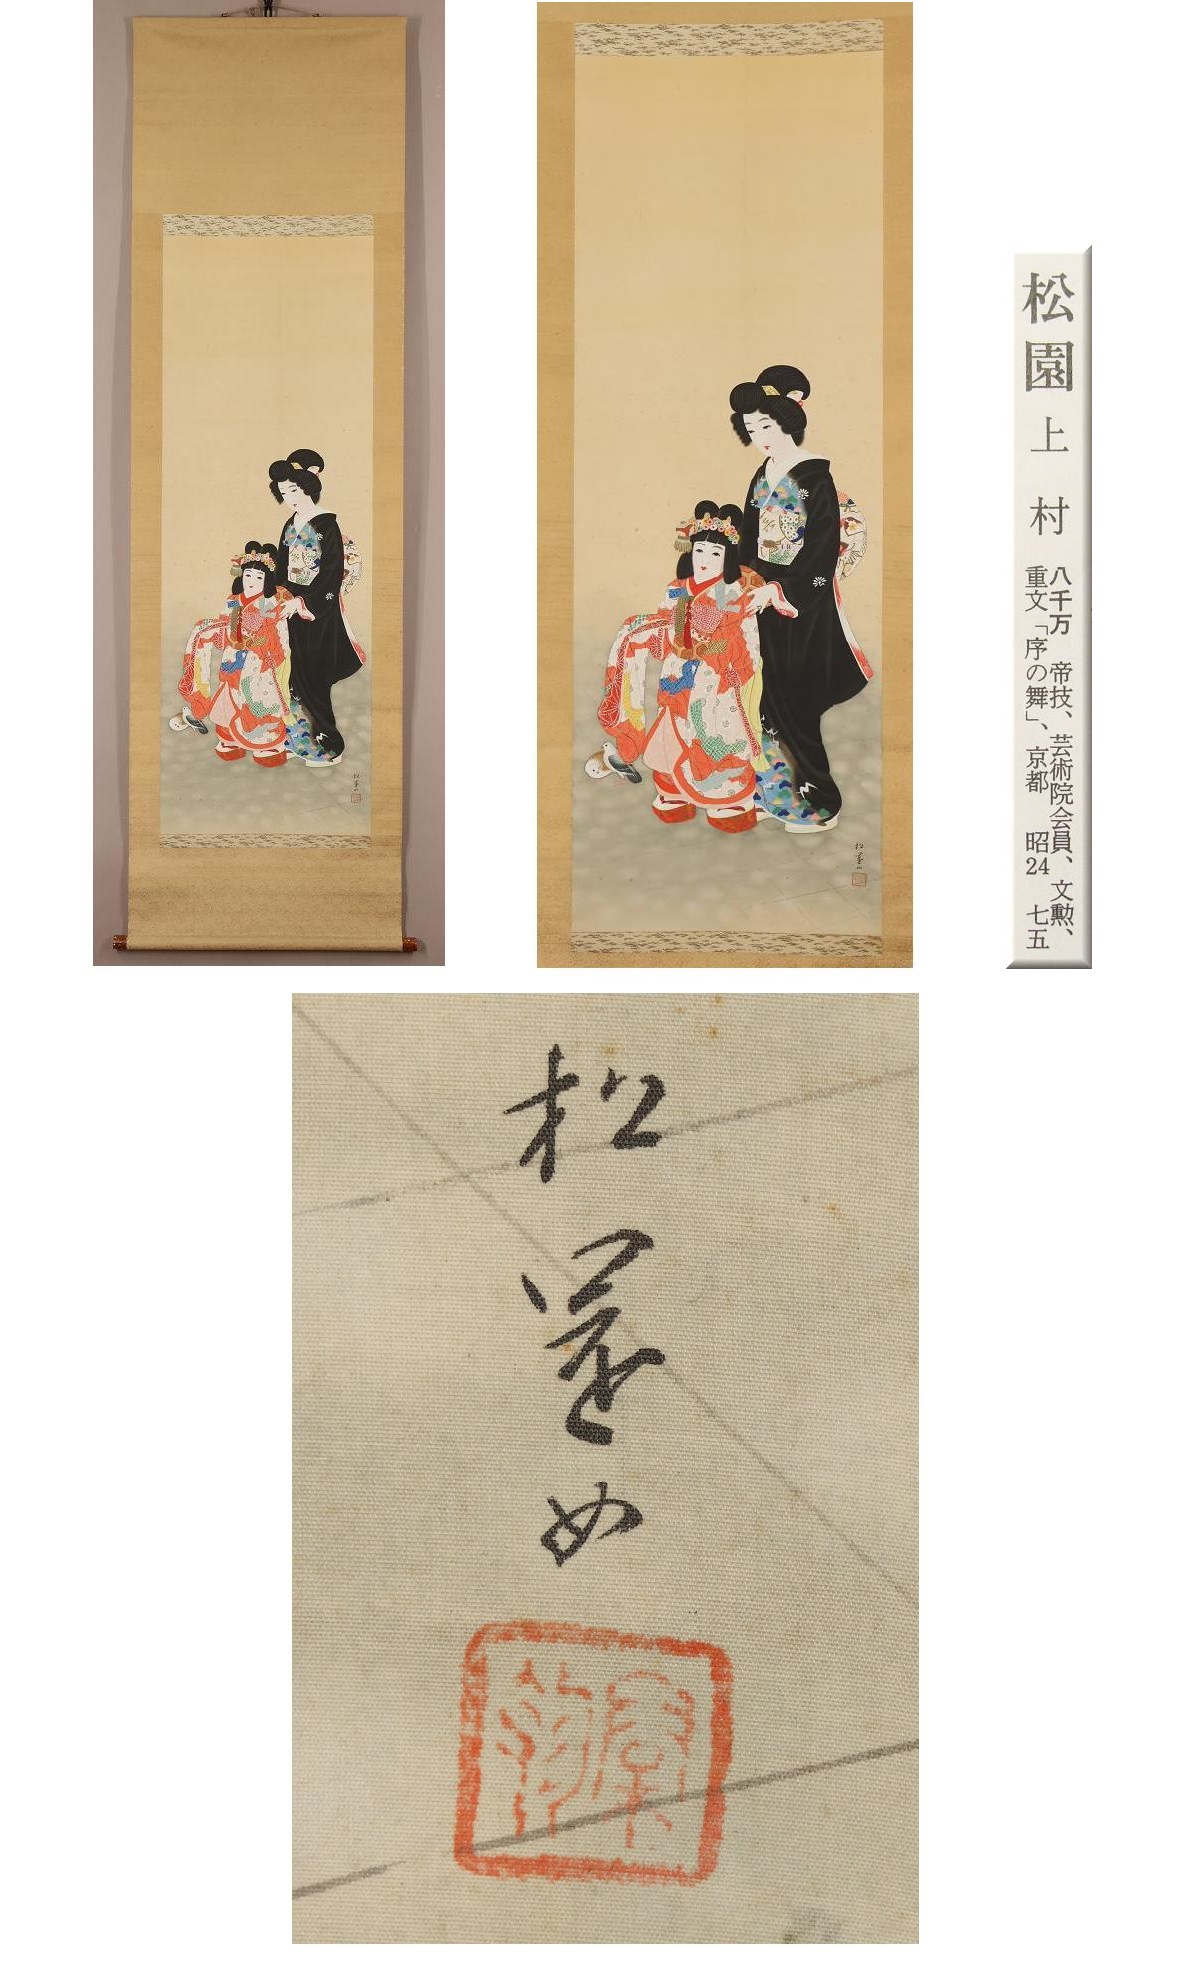 松園 上村
八千万 帝技、芸術院会員、文勲、
重文「序の舞」、京都 昭24 七五
松
園
女